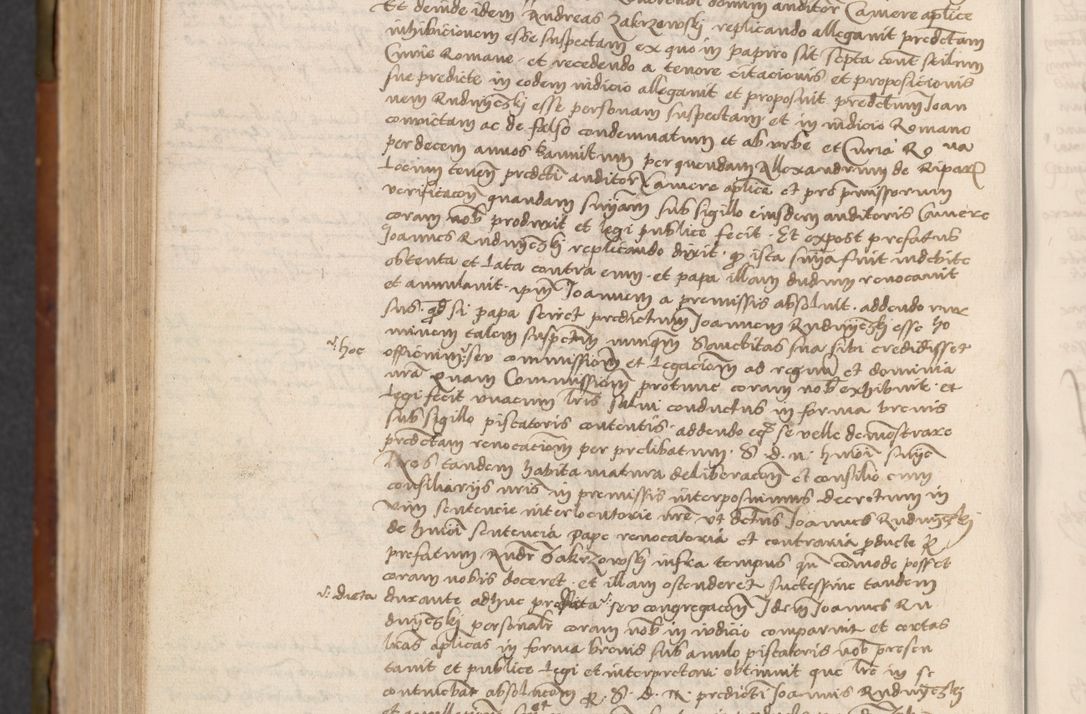 Et deinde idem Andreas Zakrzewski replicando allegavit predictam
inhibicionem esse suspectam ex quo in papiro sit scripta cont stilum
Curie Romane et recedendo a tenore citacionis et proposicionis
sue predicte in eodem iudicio allegavit et proposuit predictum Joan
nem Rudnyczski esse personam suspectam et in iudicio Romano
convictam ac de falso condemnatum et ab urbe et Curia Ro na
per decem annos bannitum per quendam Allexandrum de Ripar
Locum tenen predicti auditor Camere aplice et pro premissorum
verificacon quandam suniam sub sigillo eiusdem auditoris Camere
coram nob produxit et legi publice fecit. Et expost prefatus
Joannes Rudnyczski replicando dixit q ista sunia fuit indebite
obtenta et lata contra eum et papa illam dudum revocavit
et annulavit ipm Joannem a premissis absolvit addendo
sup qd si papa sciret predictum Joannem Rudnyczski esse ho
minem talem suspectum nunqm Sanctitas sua sibi credidisset
v hoc officium seu commissionem et Legacionem ad regnum et dominia
nra quam Commissionem protunc coram nob exhibuit et
legi fecit unacum lris salvi conductus in forma brevis
sub sigillo piscatoris contentis addendo eciam se velle demonstrare
predictam revocacionem per prelibatum S. d. n. huiusmodi sunie
Nos tandem habita matura deliberacon et consilio cum
consiliarijs nris in premissis interposuimus decretum in
vim sentencie interlocutorie nre ut dictus Joannes Rudnyczski
de huiusmodi sentencia pape revocatoria et contraria producte p
prefatum Andr Zakrzowski infra tempus qu comode posset
coram nobis doceret et illam ostenderet successive tandem
v dieta durante adhuc predicta seu congregacon Idem Joannes Ru
dnyczski personalr coram nob in iudicio comparuit et certas
lras aplicas in forma brevis sub anulo piscatoris nob presen
tavit et publice legi et interpretari obtinuit que lre in se
continebat absolucionem p S. d. N. predicti Joannis Rudnyczski